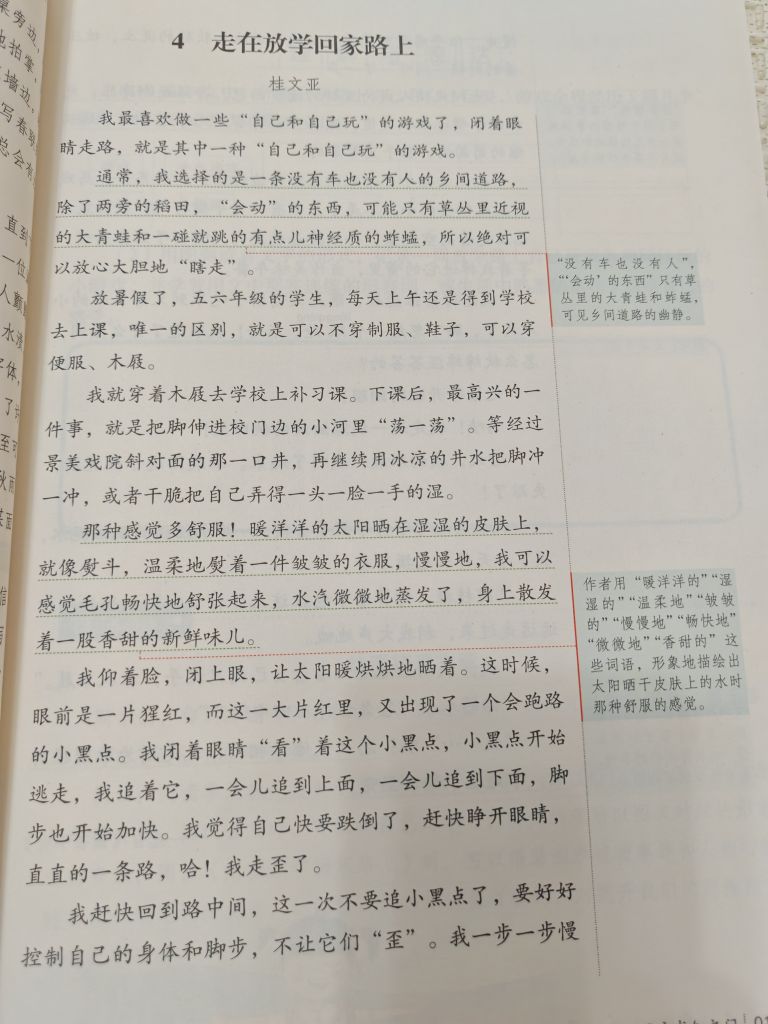 4 走在放学回家路上
桂文亚
我最喜欢做一些“自己和自己玩”的游戏了，闭着眼
睛走路，就是其中一种“自己和自己玩”的游戏。
通常，我选择的是一条没有车也没有人的乡间道路，
除了两旁的稻田，“会动”的东西，可能只有草丛里近视
的大青蛙和一碰就跳的有点儿神经质的蚱蜢，所以绝对可
以放心大胆地“瞎走”。
放暑假了，五六年级的学生，每天上午还是得到学校
去上课，唯一的区别，就是可以不穿制服、鞋子，可以穿
便服、木屐。
我就穿着木屐去学校上补习课。下课后，最高兴的一
件事，就是把脚伸进校门边的小河里“荡一荡”。等经过
景美戏院斜对面的那一口井，再继续用冰凉的井水把脚冲
一冲，或者干脆把自己弄得一头一脸一手的湿。
那种感觉多舒服！暖洋洋的太阳晒在湿湿的皮肤上，
就像熨斗，温柔地熨着一件皱皱的衣服，慢慢地，我可以
感觉毛孔畅快地舒张起来，水汽微微地蒸发了，身上散发
着一股香甜的新鲜味儿。
我仰着脸，闭上眼，让太阳暖烘烘地晒着。这时候，
眼前是一片猩红，而这一大片红里，又出现了一个会跑路
的小黑点。我闭着眼睛“看”着这个小黑点，小黑点开始
逃走，我追着它，一会儿追到上面，一会儿追到下面，脚
步也开始加快。我觉得自己快要跌倒了，赶快睁开眼睛，
直直的一条路，哈！我走歪了。
我赶快回到路中间，这一次不要追小黑点了，要好好
控制自己的身体和脚步，不让它们“歪”。我一步一步慢
“没有车也没有人”，
“‘会动’的东西”只有草
丛里的大青蛙和蚱蜢，
可见乡间道路的幽静。
作者用“暖洋洋的”“湿
湿的”“温柔地”“皱皱
的”“慢慢地”“畅快地”
“微微地”“香甜的”这
些词语，形象地描绘出
太阳晒干皮肤上的水时
那种舒服的感觉。